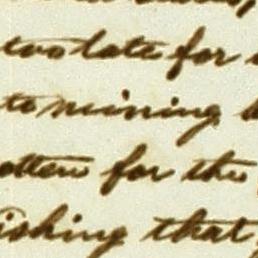 too late for
to mining
for the
ishing that